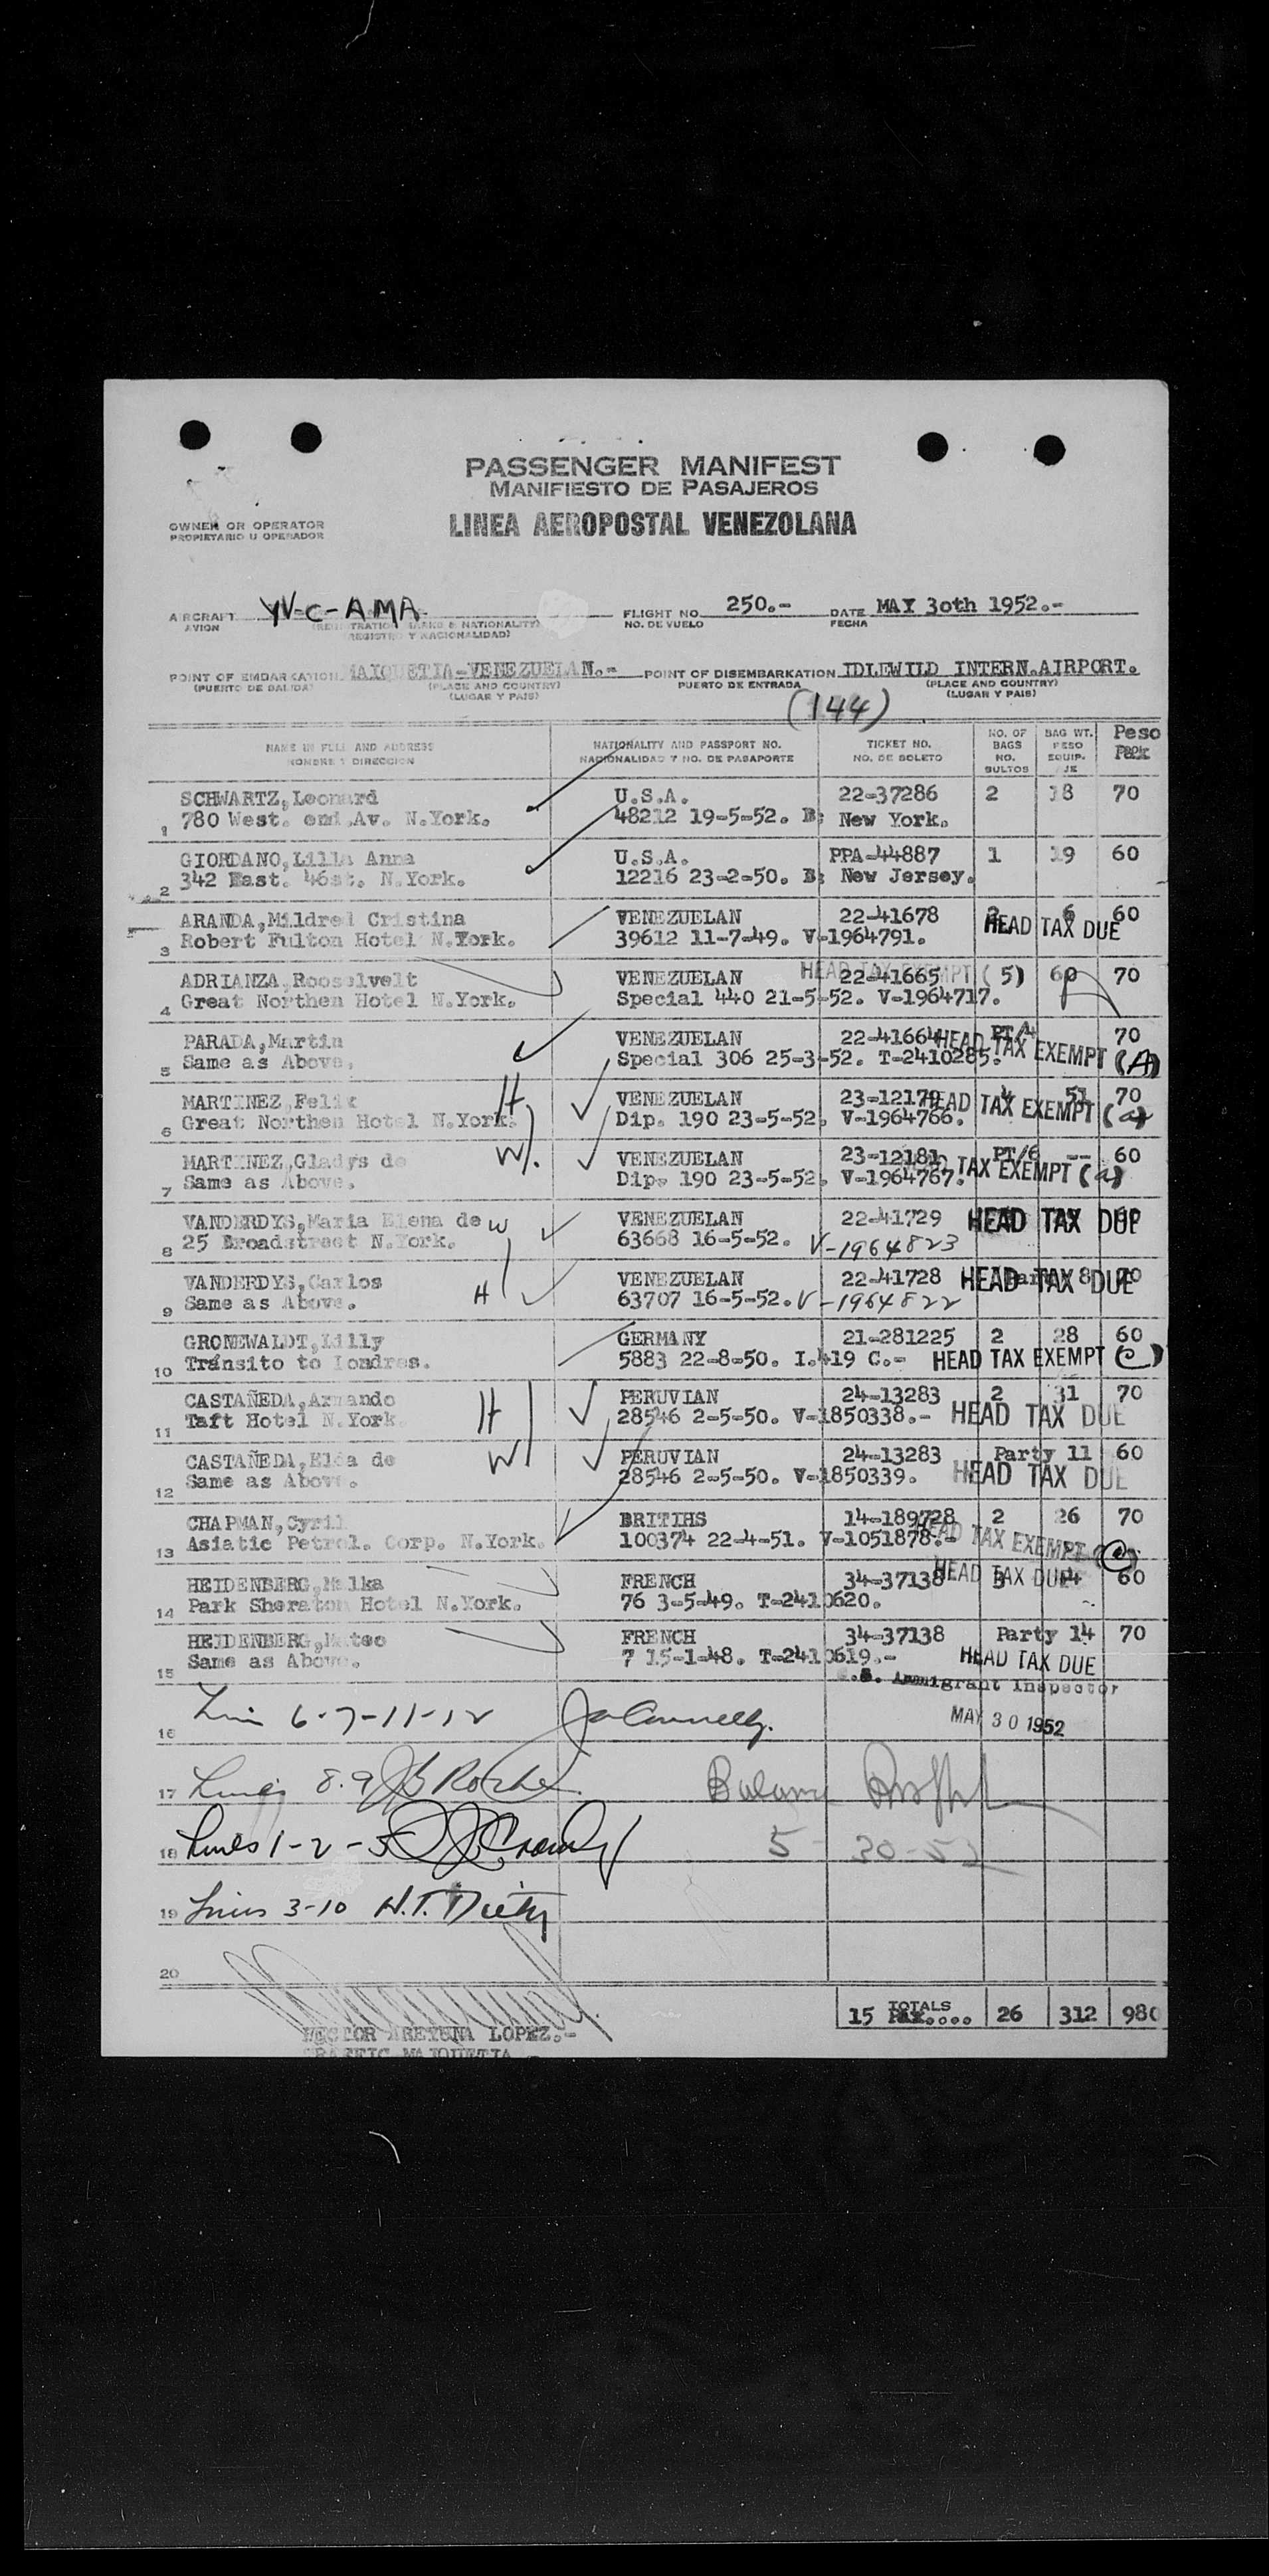 PASSENGER MANIFEST
MANIFIESTO DE PASAJEROS
LINEA AEROPOSTAL VENEZOLANA
OWNER OR OPERATOR
PROPIETARIO U OPERADOR
AIRCRAFT YV-C-AMA FLIGHT NO. 250.- DATE MAY 30th 1952.-
AVION NO. DE VUELO FECHA
(REGISTRATION MARKS & NATIONALITY)
REGISTRO Y NACIONALIDAD)
POINT OF EMBARKATION MAIQUETIA-VENEZUELAN.- POINT OF DISEMBARKATION IDLEWILD INTERN.AIRPORT.
(PUERTO DE SALIDA) (PLACE AND COUNTRY) PUERTO DE ENTRADA (PLACE AND COUNTRY)
(LUGAR Y PAIS) (LUGAR Y PAIS)
(144)
NAME IN FULL AND ADDRESS NATIONALITY AND PASSPORT NO. TICKET NO. NO. OF BAGS BAG WT. Peso
NOMBRE Y DIRECCION NACIONALIDAD Y NO. DE PASAPORTE NO. DE BOLETO NO. BULTOS PESO EQUIP.JE Pax
SCHWARTZ,Leonard U.S.A. 22-37286 2 18 70
1 780 West. end.Av. N.York. 48212 19-5-52. B: New York.
GIORDANO,Lilla Anna U.S.A. PPA-44887 1 19 60
2 342 East. 46st. N.York. 12216 23-2-50. B: New Jersey.
ARANDA,Mildred Cristina VENEZUELAN 22-41678 2 6 60
3 Robert Fulton Hotel N.York. 39612 11-7-49. V-1964791. HEAD TAX DUE
ADRIANZA,Rooselvelt VENEZUELAN 22-41665 HEAD TAX EXEMPT (5) 60 70
4 Great Northen Hotel N.York. Special 440 21-5-52. V-1964717.
PARADA,Martin VENEZUELAN 22-41664 PT/4 70
5 Same as Above. Special 306 25-3-52. T-2410285. HEAD TAX EXEMPT (A)
MARTINEZ,Felix H VENEZUELAN 23-12179 4 51 70
6 Great Northen Hotel N.York. Dip. 190 23-5-52. V-1964766. HEAD TAX EXEMPT (a)
MARTINEZ,Gladys de W. VENEZUELAN 23-12181 PT/6 -- 60
7 Same as Above. Dip. 190 23-5-52. V-1964767. TAX EXEMPT (a)
VANDERDYS,Maria Elena de W VENEZUELAN 22-41729 HEAD TAX DUE
8 25 Broadstreet N.York. 63668 16-5-52. V-1964823
VANDERDYS,Carlos VENEZUELAN 22-41728 Party 8 70 HEAD TAX DUE
9 Same as Above. H 63707 16-5-52. V-1964822
GRONEWALDT,Lilly GERMANY 21-281225 2 28 60
10 Tránsito to Londres. 5883 22-8-50. I.419 C.- HEAD TAX EXEMPT (C)
CASTAÑEDA,Armando H PERUVIAN 24-13283 2 31 70
11 Taft Hotel N.York 28546 2-5-50. V-1850338.- HEAD TAX DUE
CASTAÑEDA,Elsa de W PERUVIAN 24-13283 Party 11 60
12 Same as Above. 28546 2-5-50. V-1850339. HEAD TAX DUE
CHAPMAN,Cyril BRITIHS 14-189728 2 26 70
13 Asiatic Petrol. Corp. N.York. 100374 22-4-51. V-1051878.- HEAD TAX EXEMPT (C)
HEIDENBERG,Malka FRENCH 34-37138 3 HEAD TAX DUE 60
14 Park Sheraton Hotel N.York. 76 3-5-49. T-2410620.
HEIDENBERG,Mateo FRENCH 34-37138 Party 14 70
15 Same as Above. 7 15-1-48. T-2410619.- HEAD TAX DUE
U.S. Immigrant Inspector
16 Lin 6-7-11-12 MAY 30 1952
17 Lines 8.9 JB Roche Balance
18 Lines 1-2-5 5-30-52
19 Lines 3-10 H.T.
20
15 TOTALS Pax.... 26 312 980
HECTOR ARETUNA LOPEZ.-
TRAFFIC MAIQUETIA.-